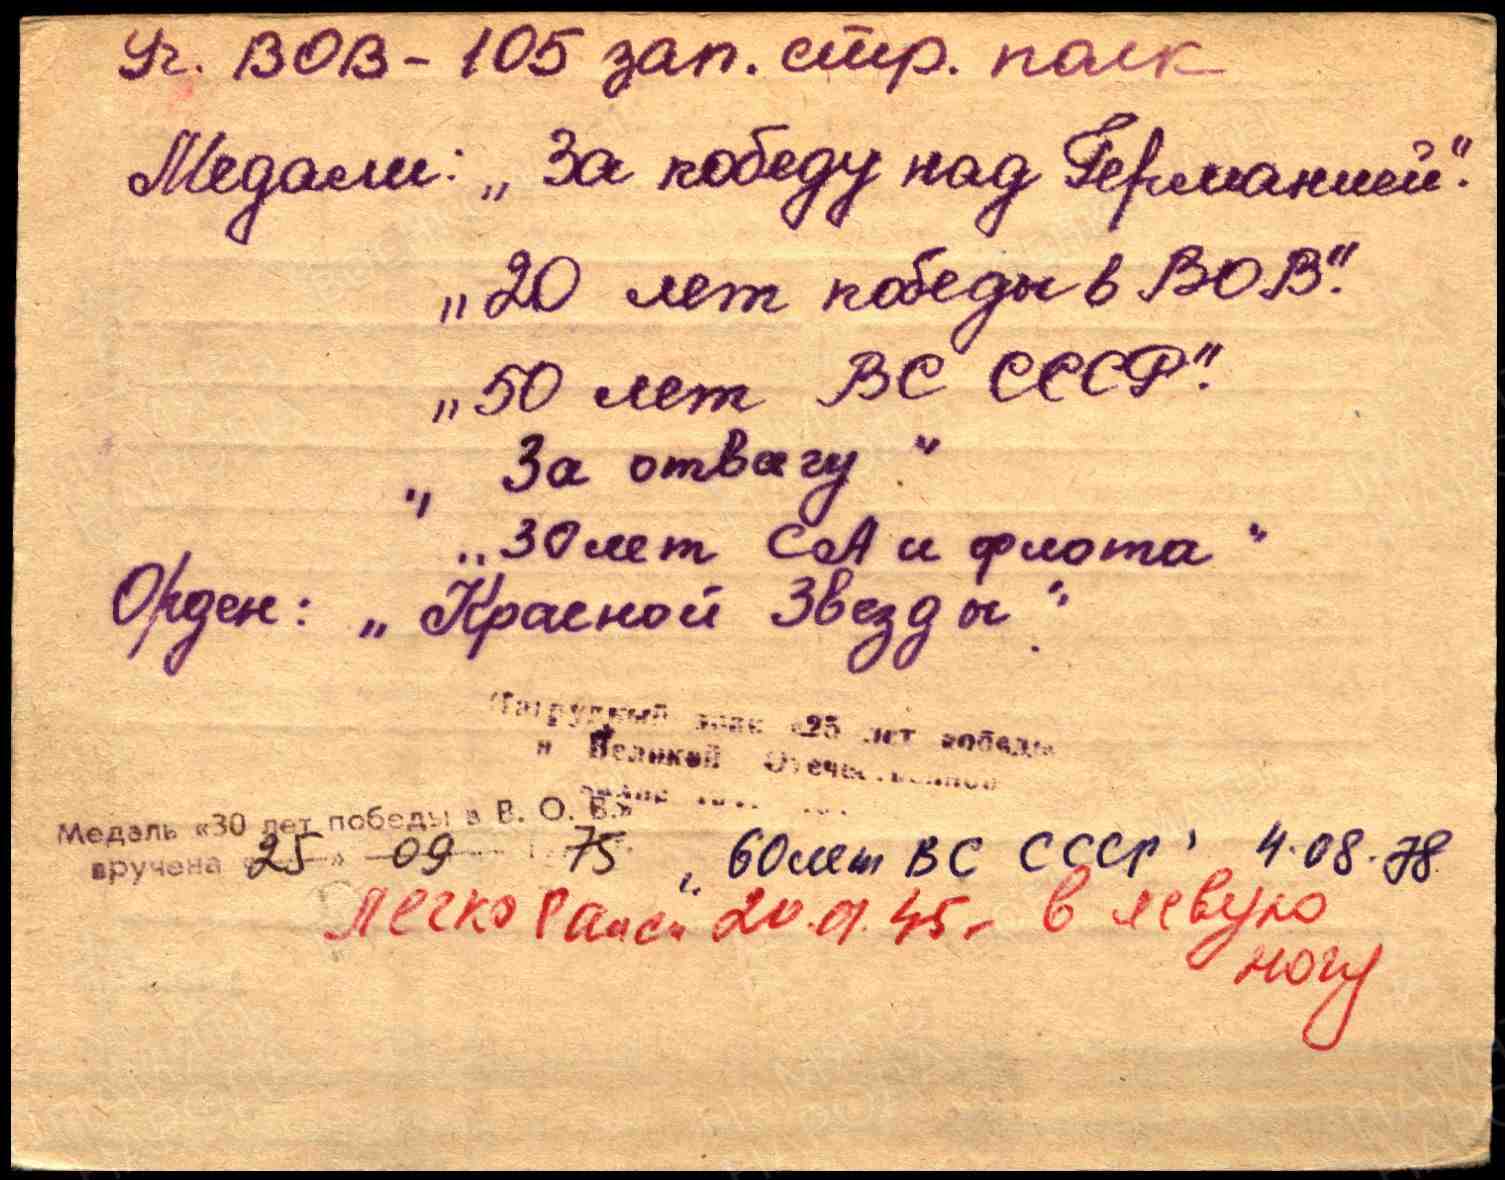 Уч. ВОВ - 105 зап. стр. полк
Медали: „За победу над Германией".
„20 лет победы в ВОВ".
„50 лет ВС СССР".
„За отвагу"
„30 лет СА и флота"
Орден: „Красной Звезды".
Нагрудный знак «25 лет победы
в Великой Отечественной
Медаль «30 лет победы в В. О. В.»
вручена «25» 09 75 „60 лет ВС СССР" 4.08.78
легко ранен 20.01.45 в левую
ногу